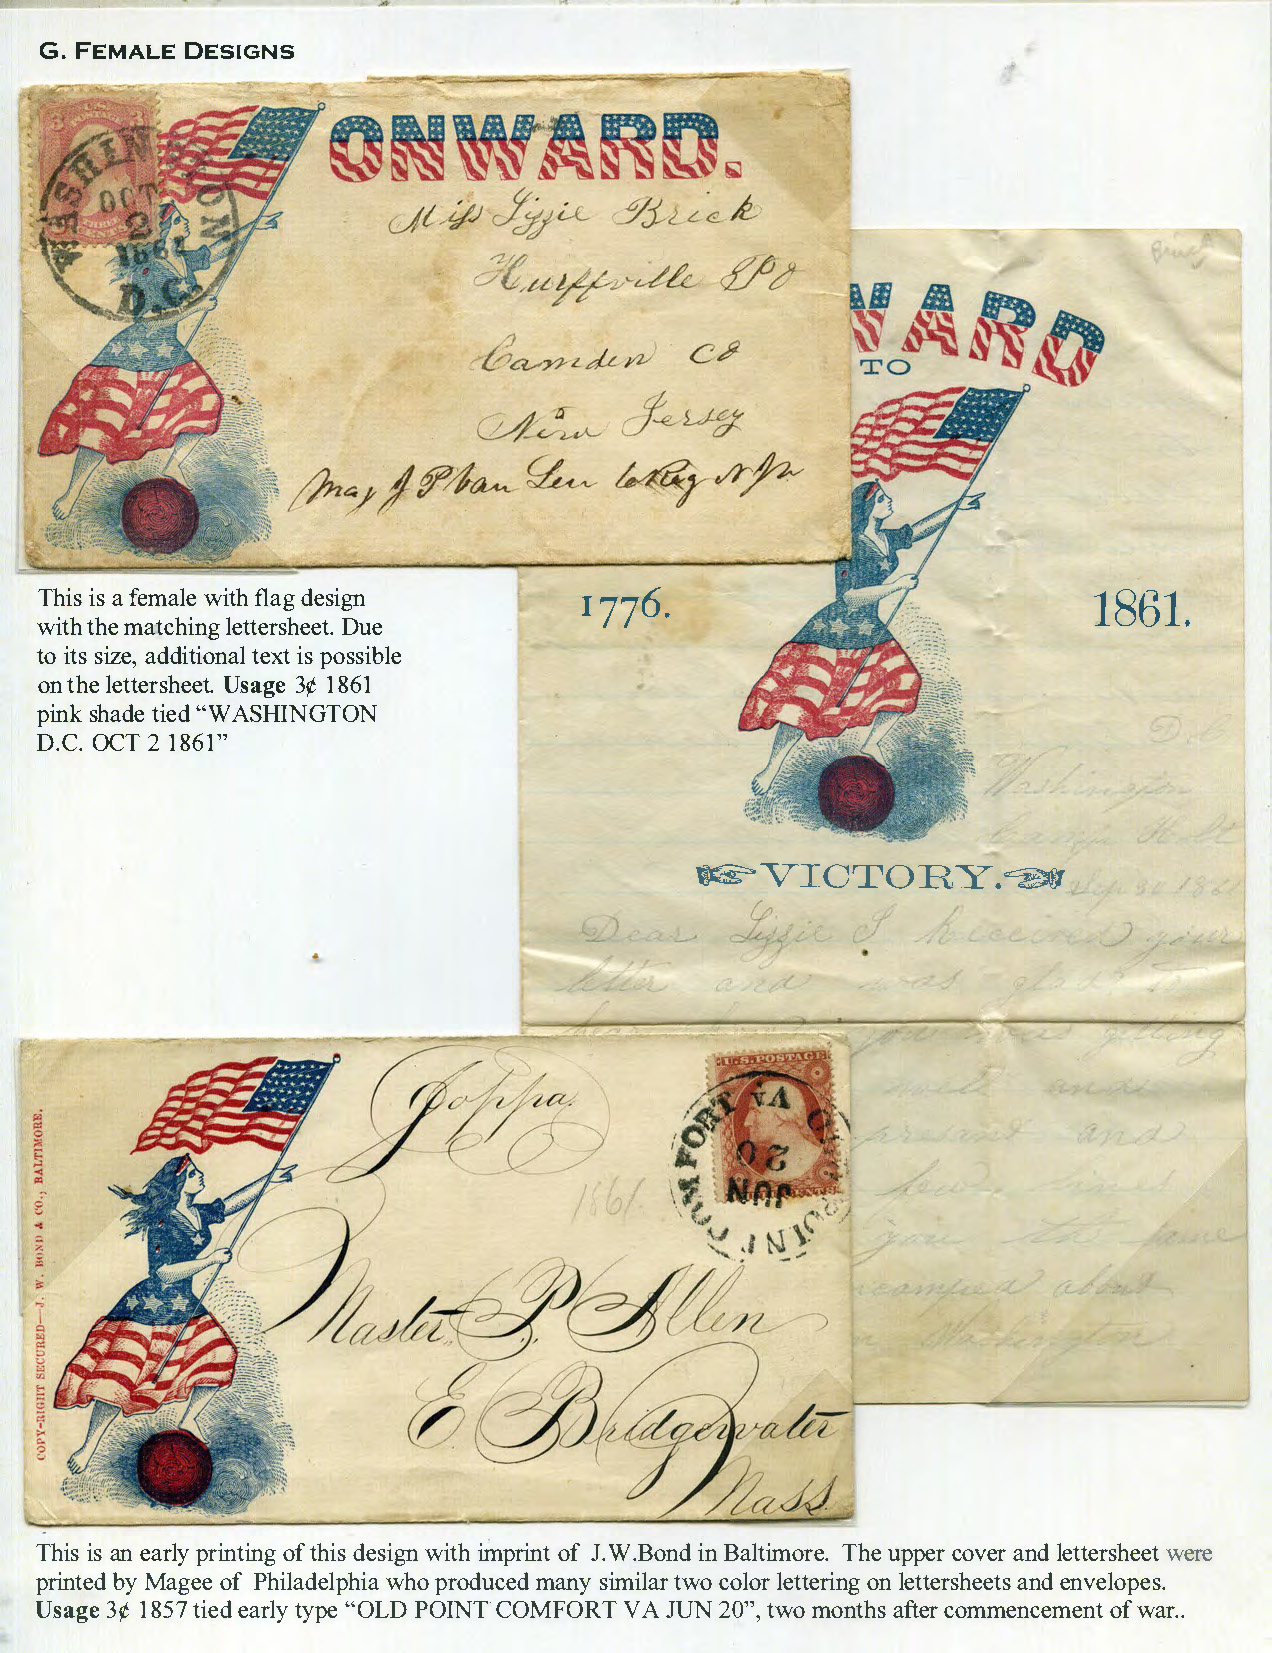 G. FEMALE DESIGNS
ONWARD.
WASHINGTON
OCT
2
1861
D.C.
Miss Lizzie Brick
Hurffville P O
Camden Co
New Jersey
WARD
TO
1776.
1861.
VICTORY.
D.C
Washington
Camp
Sep 30 1861
Dear Lizzie I received your
letter and was glad to
you were getting
and
present and
you the same
encamped about
Washington
This is a female with flag design
with the matching lettersheet. Due
to its size, additional text is possible
on the lettersheet. Usage 3¢ 1861
pink shade tied “WASHINGTON
D.C. OCT 2 1861”
COPY-RIGHT SECURED—J. W. BOND & CO., BALTIMORE.
Joppa.
1861.
U.S. POSTAGE
POINT COMFORT VA
JUN
20
Master. P. Allen
E Bridgewater
Mass.
This is an early printing of this design with imprint of J.W.Bond in Baltimore. The upper cover and lettersheet were
printed by Magee of Philadelphia who produced many similar two color lettering on lettersheets and envelopes.
Usage 3¢ 1857 tied early type “OLD POINT COMFORT VA JUN 20”, two months after commencement of war..